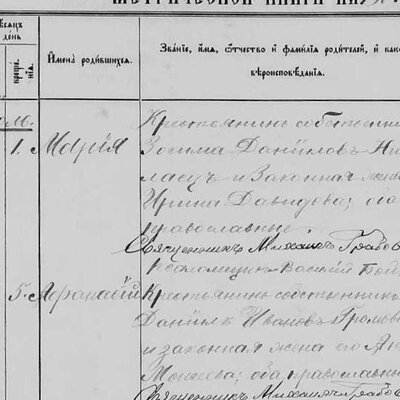 МЕТРИЧЕСКОЙ КНИГИ НА
Мѣсяцъ и день
креще-нія.
Имена родившихся.
Званіе, имя, отчество и фамилія родителей, и как
вѣроисповѣданія.
м.
1. Марія
Крестьянинъ собственни
Зосима Даниловъ
и Законная жен
Ирина Давидова; оба
православные
Священникъ Михаилъ Грабов
псаломщикъ Василій
5. Афанасій
Крестьянинъ собственникъ
Даніилъ Ивановъ Громов
и законная жена его
Моисеева; оба православны
Священникъ Михаилъ Грабов